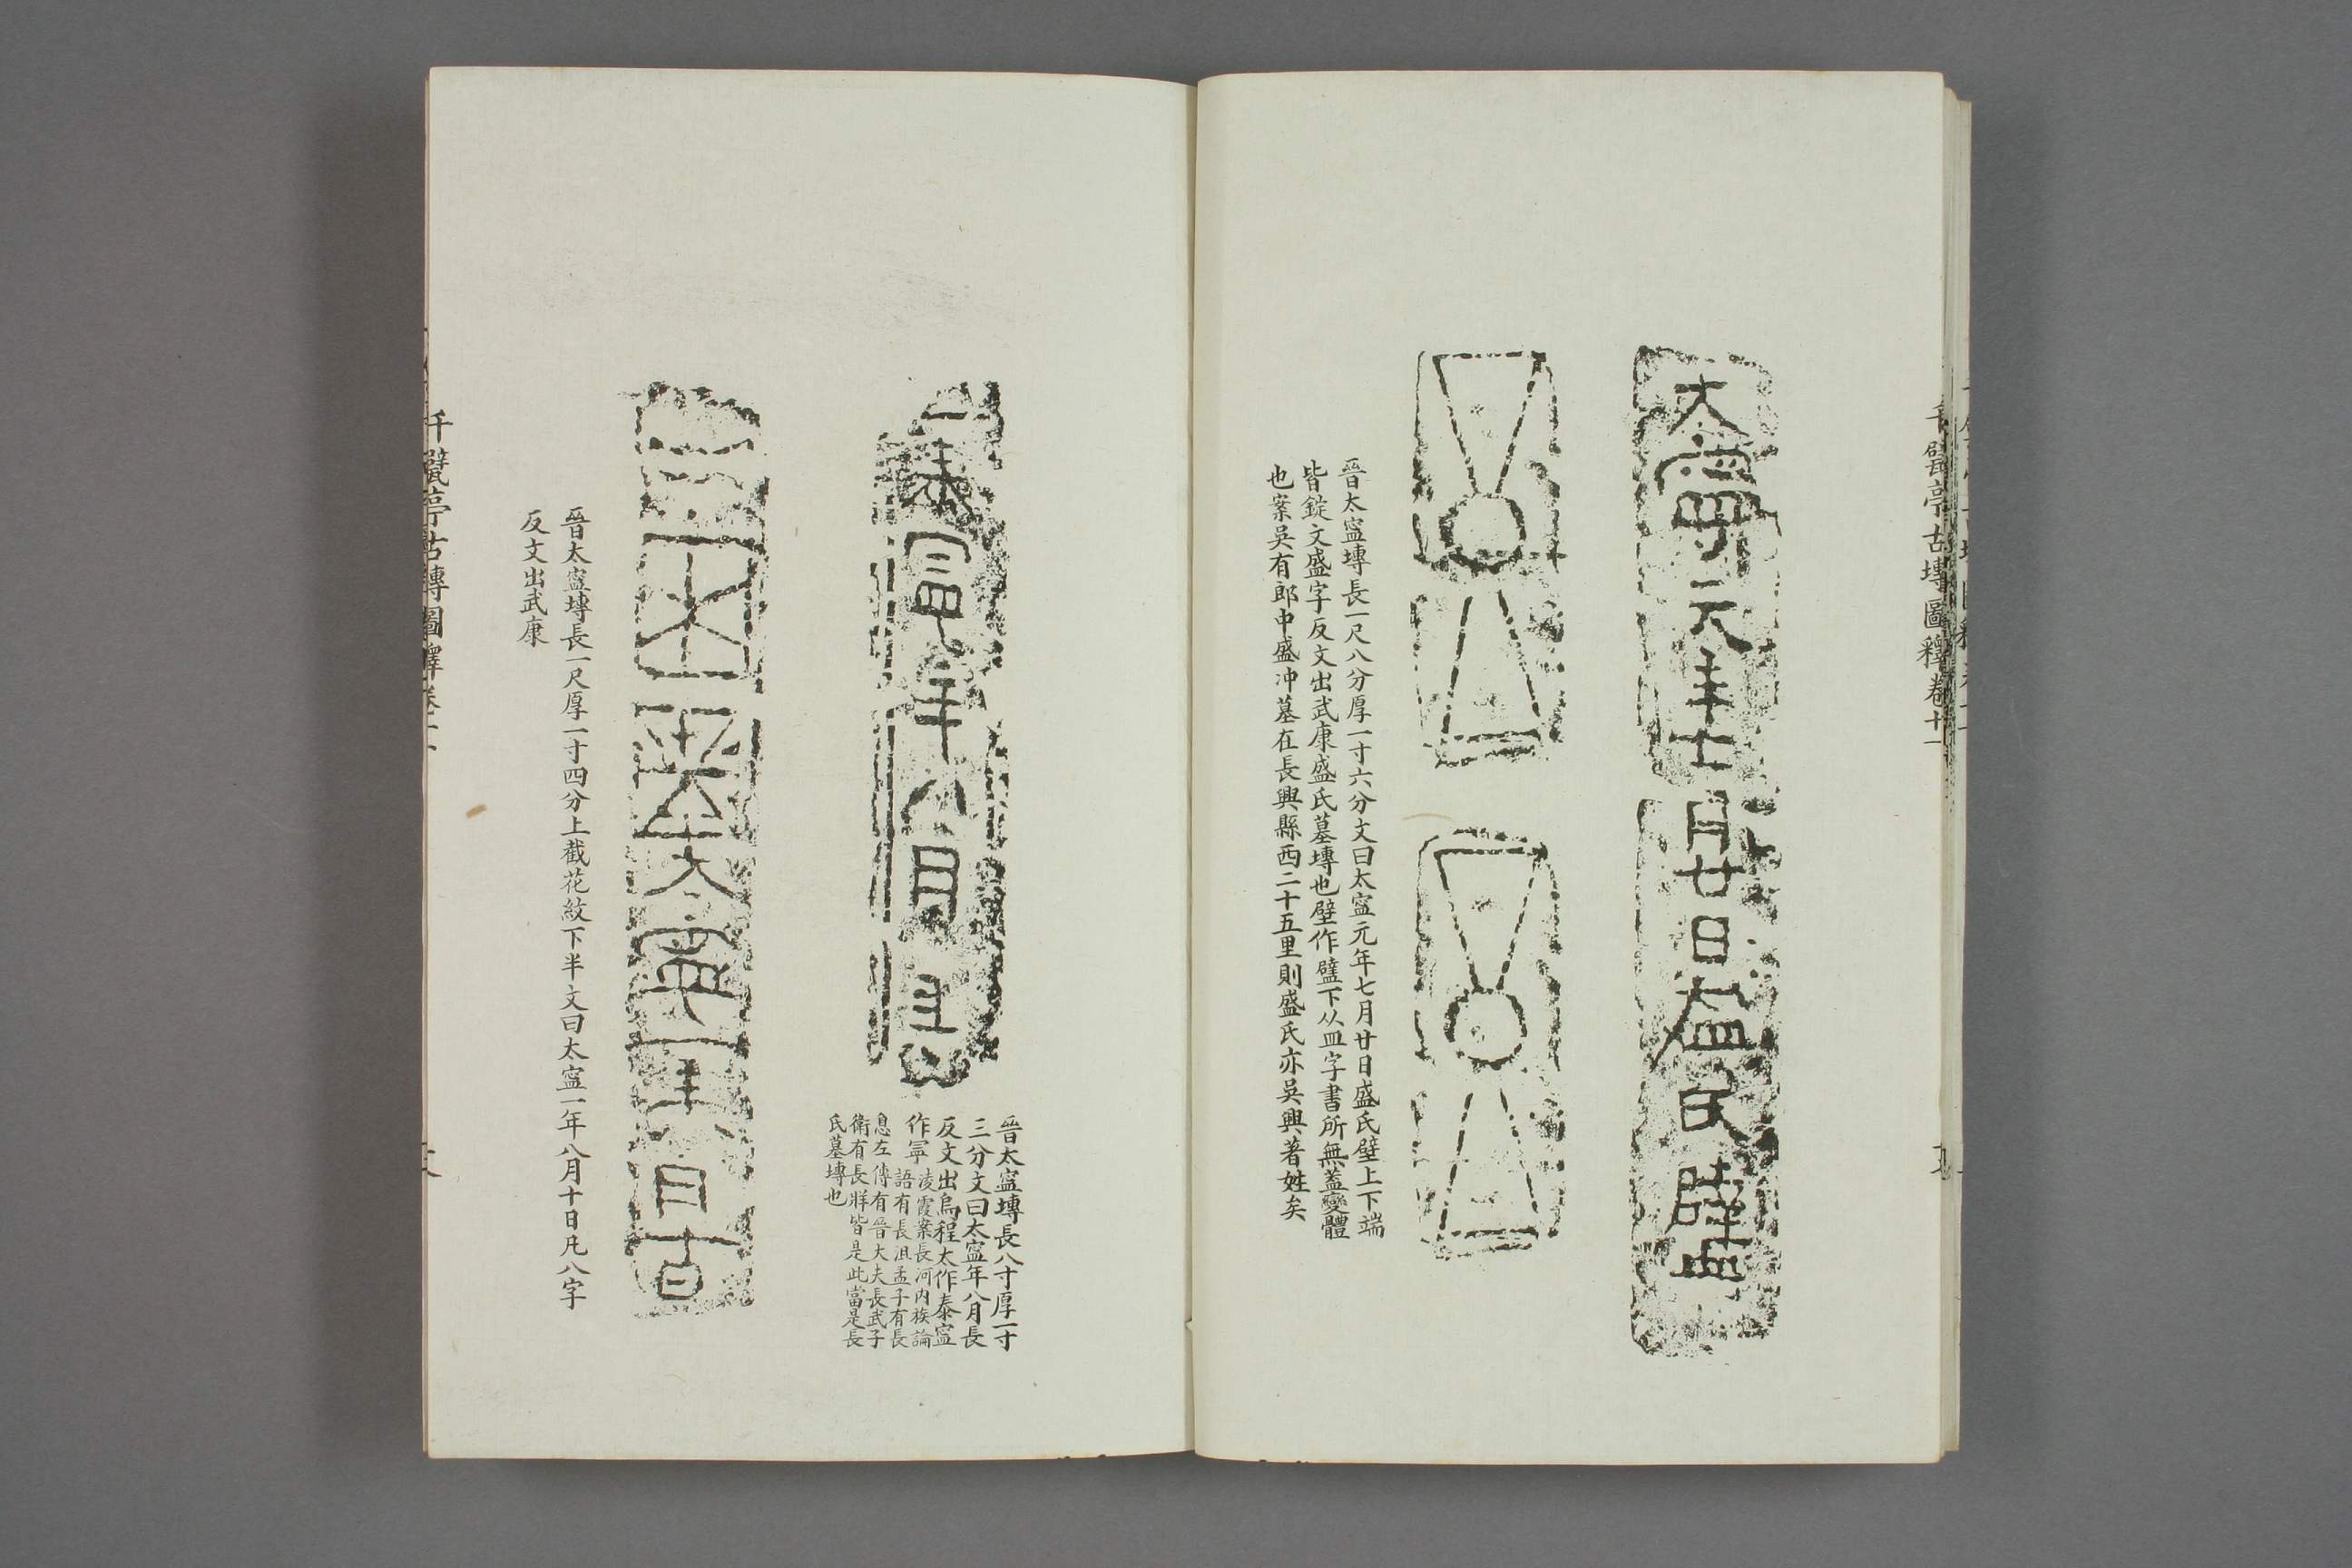 千甓亭古塼圖釋卷十一
大寍元年七月廿日盛氏
晉太寍塼長一尺八分厚一寸六分文曰太寍元年七月廿日盛氏壁上下端
皆錠文盛字反文出武康盛氏墓塼也壁作𥂝下从皿字書所無蓋變體
也案吳有郎中盛冲墓在長興縣西二十五里則盛氏亦吳興著姓矣
泰寍年八月長
晉太寍塼長八寸厚一寸
三分文曰太寍年八月長
反文出烏程太作泰寍
作寜
淩霞案長河內族論
語有長沮孟子有長
息左傳有晉大夫長武子
衛有長牂皆是此當是長
氏墓塼也
大寍一年八月十日
晉太寍塼長一尺厚一寸四分上截花紋下半文曰太寍一年八月十日凡八字
反文出武康
千甓亭古塼圖釋卷十一